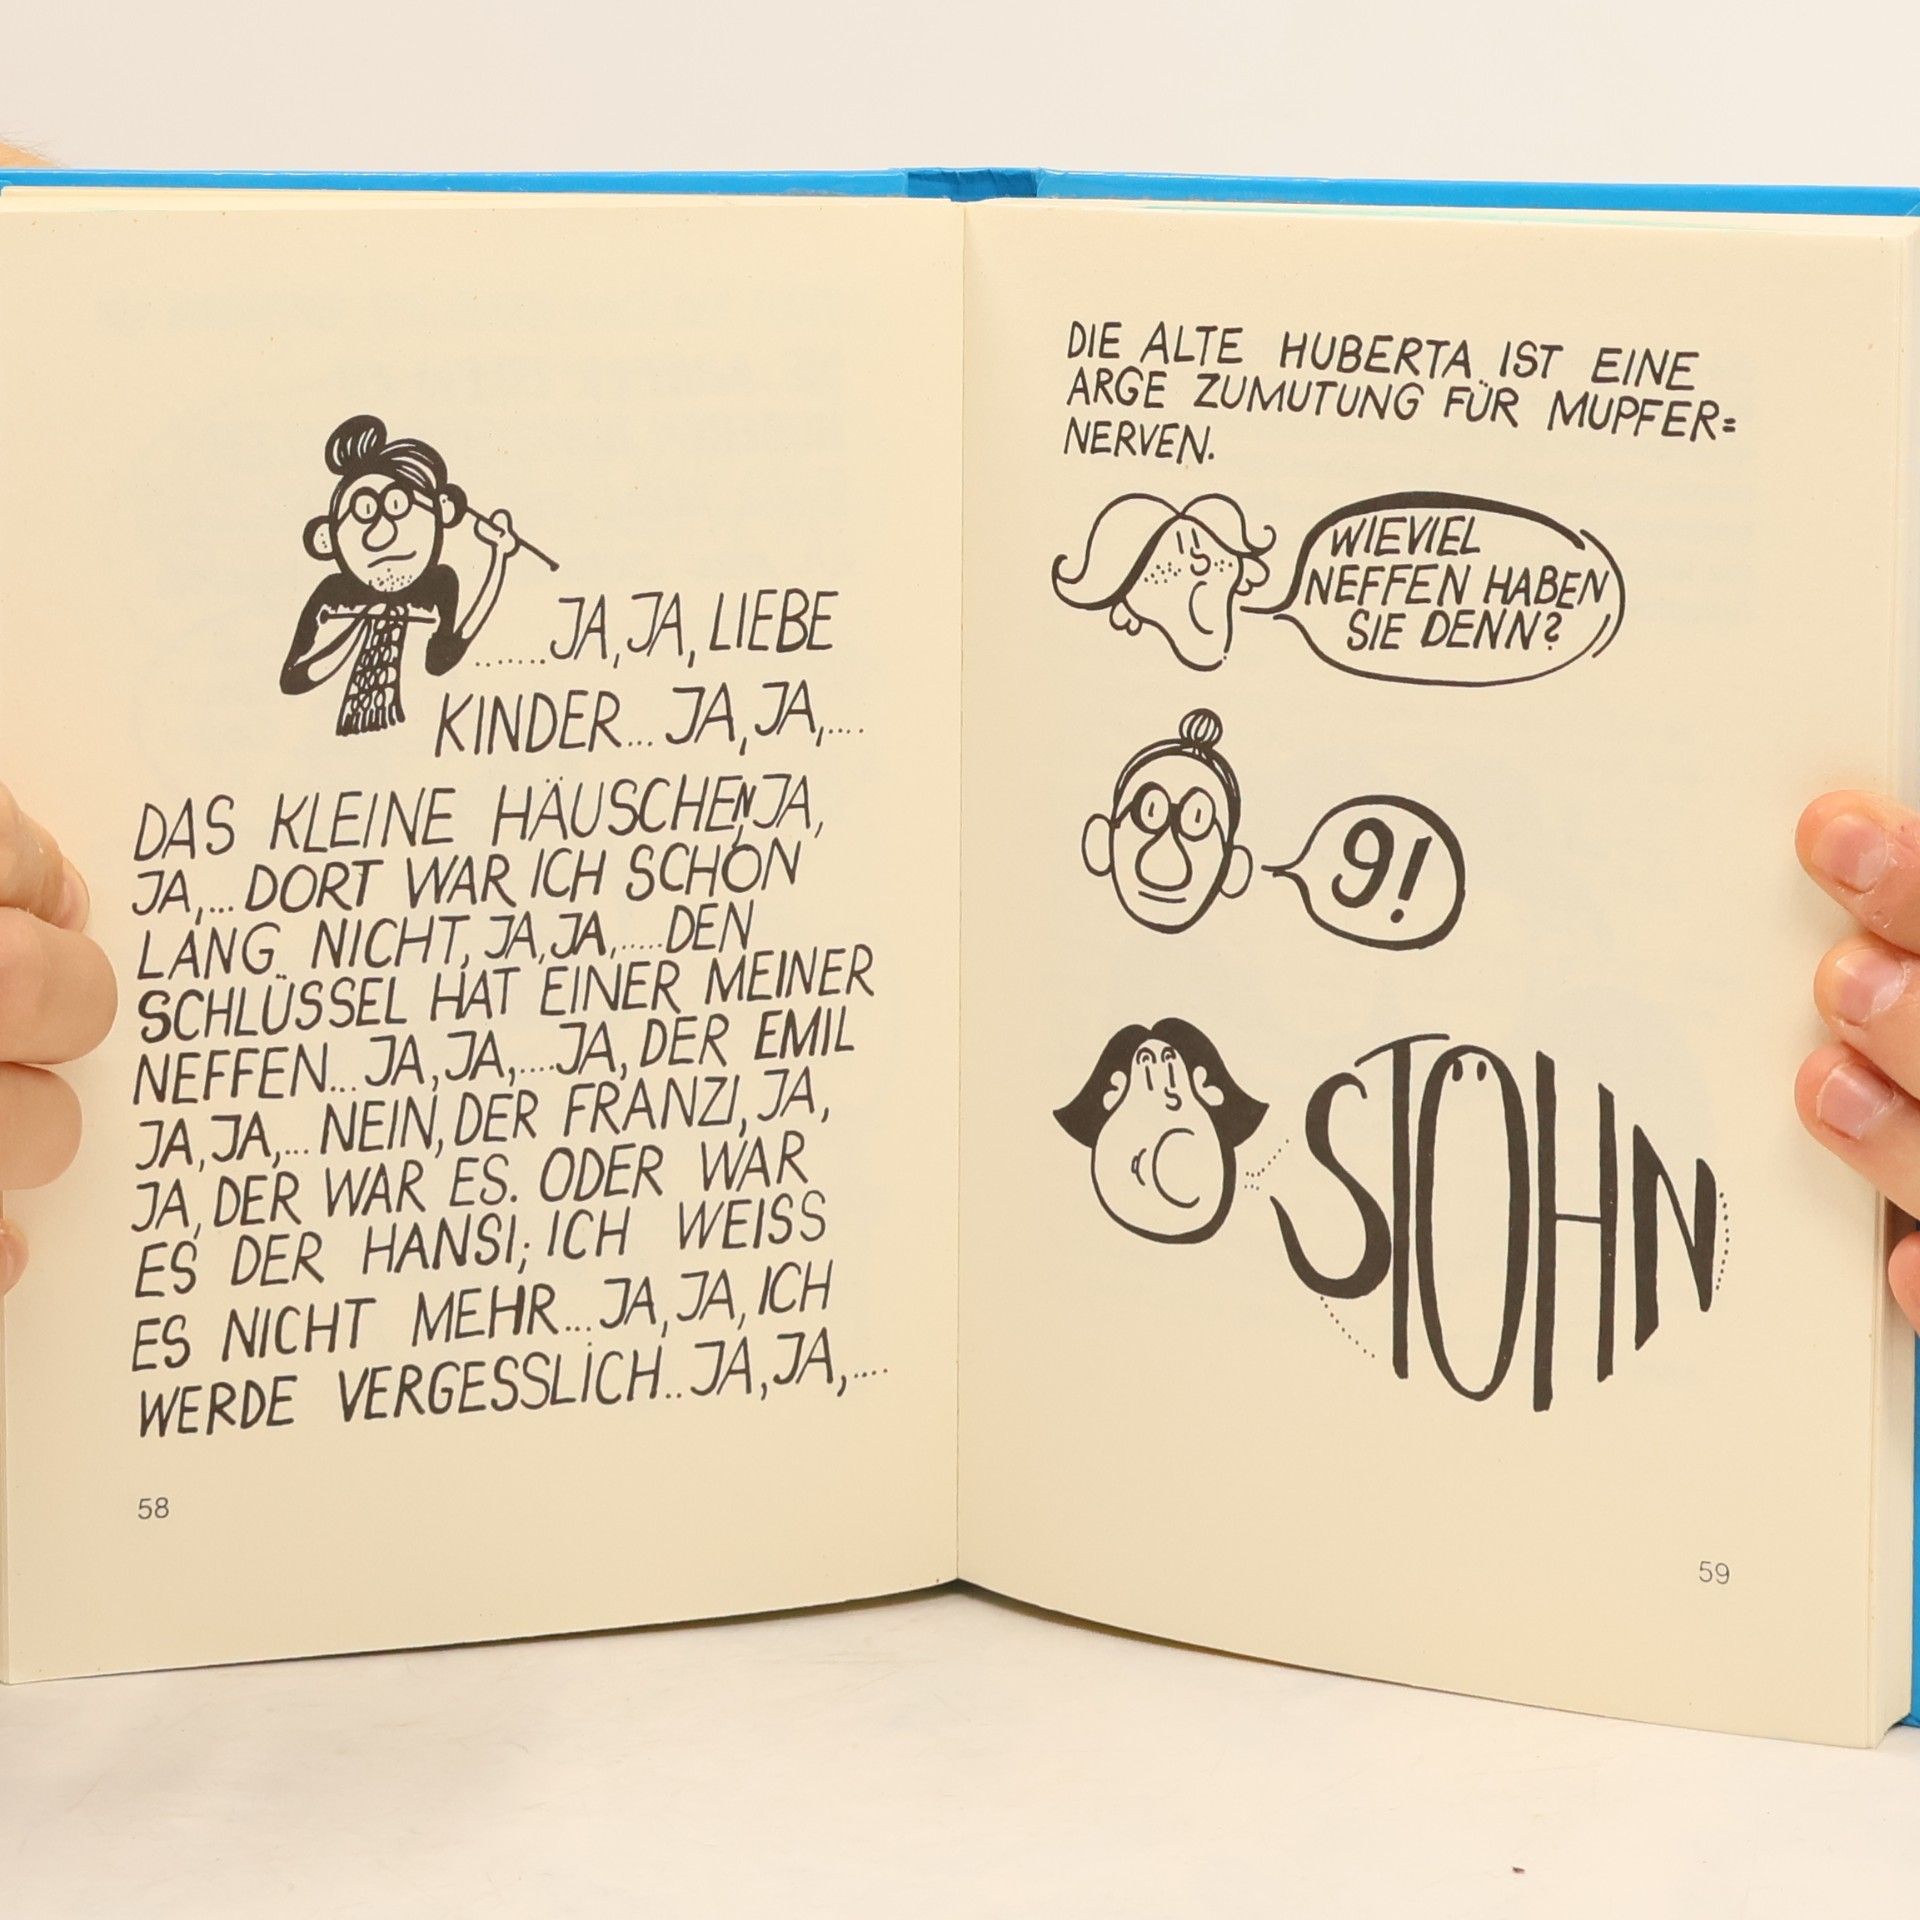 .......JA, JA, LIEBE
KINDER... JA, JA,....
DAS KLEINE HÄUSCHEN, JA,
JA,... DORT WAR ICH SCHON
LANG NICHT, JA, JA,.....DEN
SCHLÜSSEL HAT EINER MEINER
NEFFEN... JA, JA,....JA, DER EMIL
JA, JA,... NEIN, DER FRANZI, JA,
JA, DER WAR ES. ODER WAR
ES DER HANSI; ICH WEISS
ES NICHT MEHR... JA, JA, ICH
WERDE VERGESSLICH.. JA, JA,....
58
DIE ALTE HUBERTA IST EINE
ARGE ZUMUTUNG FÜR MUPFER=
NERVEN.
WIEVIEL
NEFFEN HABEN
SIE DENN?
9!
STÖHN
59